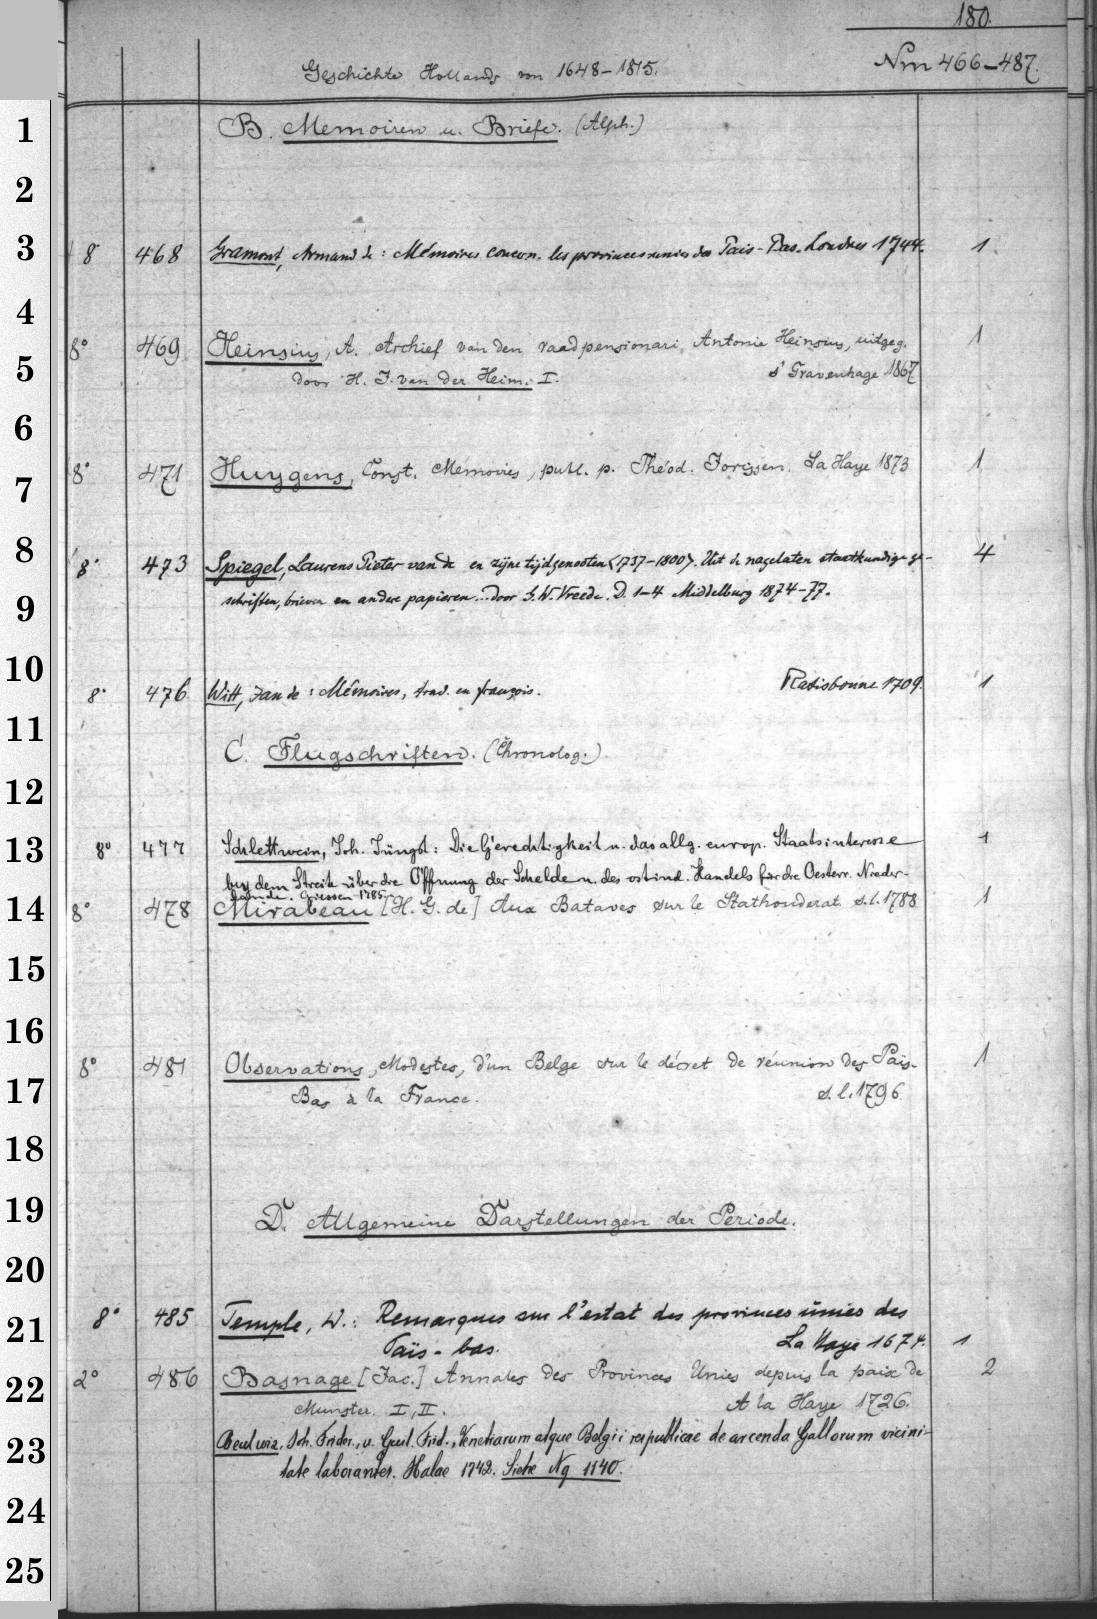 180.
Geschichte Hollands von 1648–1815.
Nm 466–487.
1
B. Memoiren u. Briefe. (Alph.)
2
3
8° 468 Gramont, Armand de: Mémoires concern. les provinces unies des Pais-Bas. Londres 1744. 1
4
8° 469 Heinsius, A. Archief van den raadpensionari, Antonie Heinsius, uitgeg. 1
5
door H. J. van der Heim. I. s'Gravenhage 1867
6
8° 471 Huygens, Const. Mémoires, publ. p. Théod. Jorissen. La Haye 1873 1
7
8
8° 473 Spiegel, Laurens Pieter van de en zijne tijdgenooten (1737–1800). Uit de nagelaten staatkundige ge- 4
9
schriften, brieven en andere papieren... door G. W. Vreede. D. 1–4 Middelburg 1874–77.
10
8° 476 Witt, Jan de: Mémoires, trad. en françois. Ratisbonne 1709. 1
11
C. Flugschriften. (Chronolog.)
12
13
8° 477 Schlettwein, Joh. Jüngst: Die Gerechtigkeit u. das allg. europ. Staatsinteresse 1
bey dem Streite über die Öffnung der Schelde u. des ostind. Handels für die Oesterr. Nieder-
lande. Giessen 1785
14
8° 478 Mirabeau [H. G. de] Aux Bataves sur le Stathouderat s.l. 1788 1
15
16
8° 481 Observations, Modestes, d'un Belge sur le décret de réunion des Pais- 1
17
Bas à la France. s.l. 1796
18
19
D. Allgemeine Darstellungen der Periode.
20
21
8° 485 Temple, W.: Remarques sur l'estat des provinces unies des
Païs-bas. La Haye 1674. 1
22
2° 486 Basnage [Jac.] Annales des Provinces Unies depuis la paix de 2
Munster. I, II. A la Haye 1726.
23
Beulwiz, Joh. Frider., u. Guil. Frid., Venetiarum atque Belgii respublicae de arcenda Gallorum vicini-
tate laborantes. Halae 1742. Siehe Ng 1140.
24
25